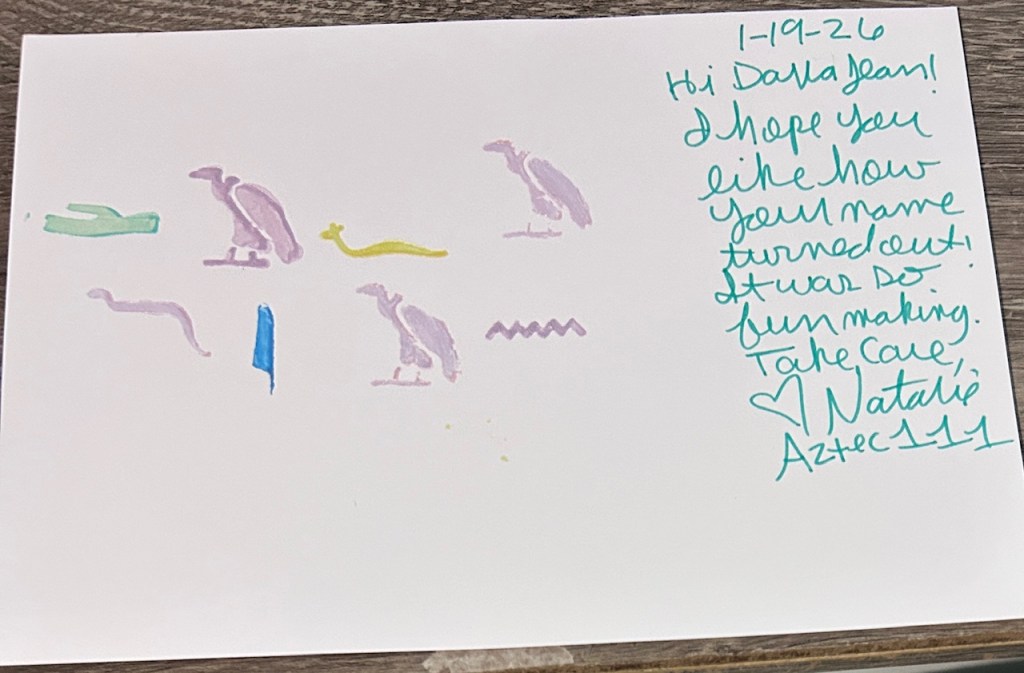 𓂧𓄿𓆑𓄿
𓆓𓇋𓄿𓈖
1-19-26
Hi DaVaJean!
I hope you
like how
your name
turned out!
It was so
fun making.
Take Care,
♡ Natalie
Aztec111